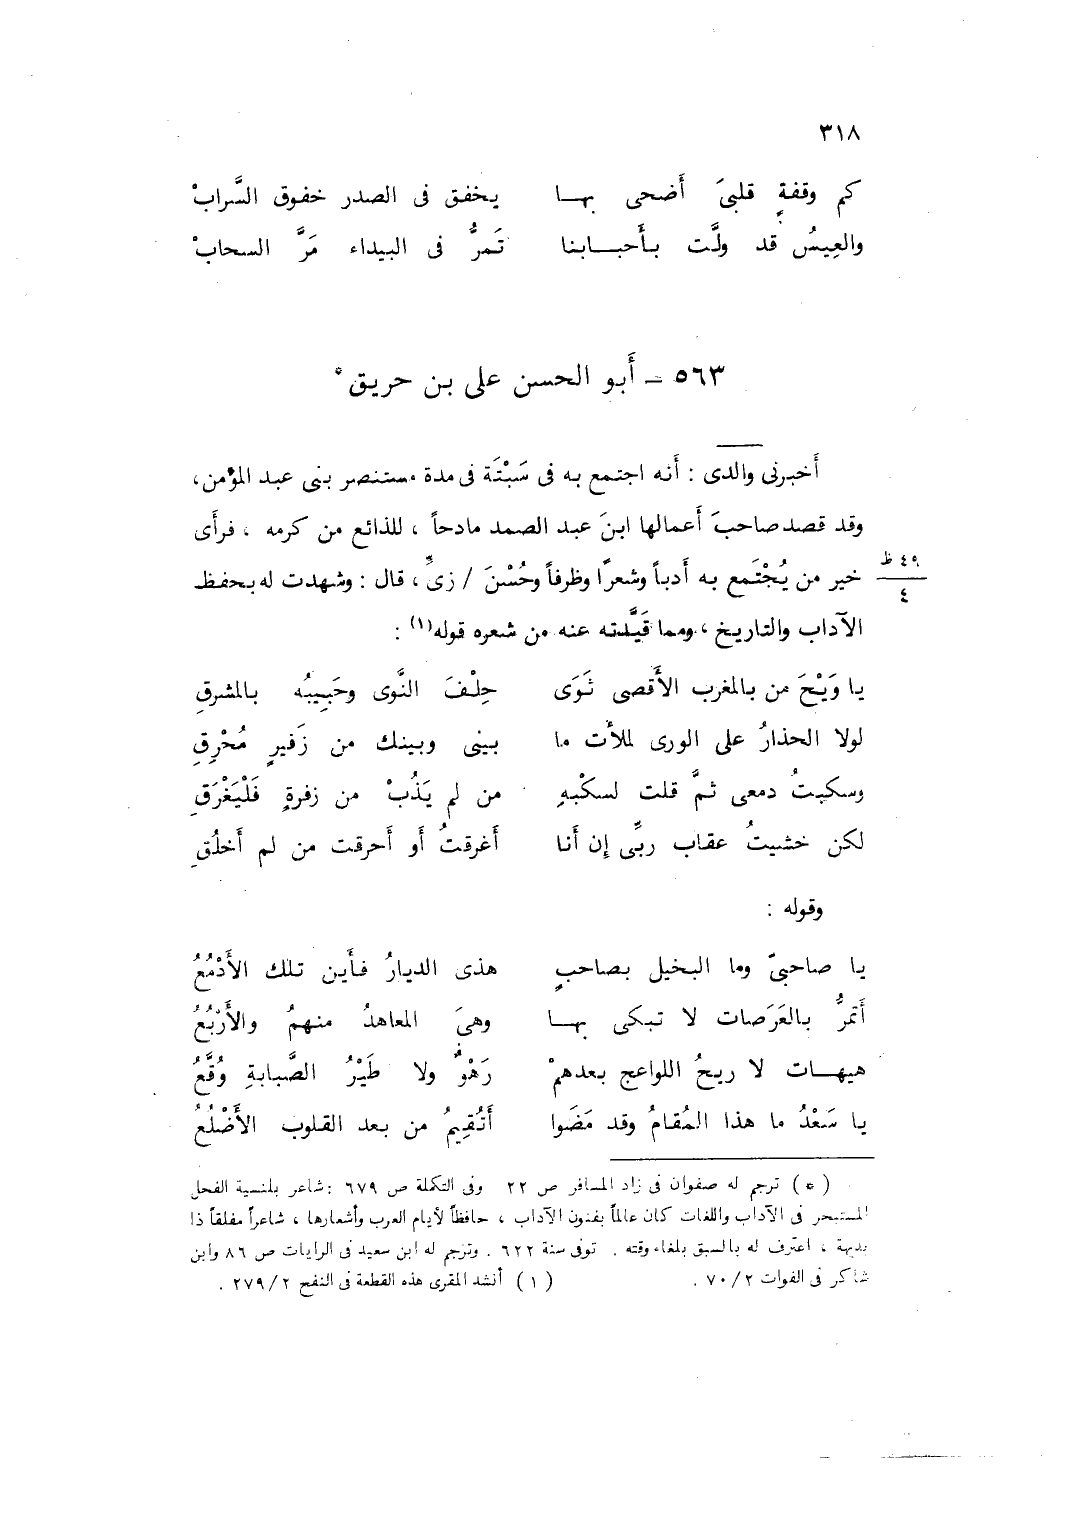 ٣١٨
كم وقفةٍ قلبىَ أَضحى بهـا يخفق فى الصدر خفوق السَّرابْ
والعِيسُ قد ولَّت بأَحبـابنا تَمرُّ فى البيداء مَرَّ السحابْ
٥٦٣ – أَبو الحسن على بن حريق *
أَخبرنى والدى : أَنه اجتمع به فى سَبْتَة فى مدة مستنصر بنى عبد المؤمن،
وقد قصد صاحبَ أَعمالها ابنَ عبد الصمد مادحاً ، للذائع من كرمه ، فرأَى
٤٩ ظ
٤
خير من يُجْتَمع به أدباً وشعرًا وظرفاً وحُسْنَ / زىٍّ ، قال : وشهدت له بحفظ
الآداب والتاريخ ، ومما قَيَّدته عنه من شعره قوله(١) :
يا وَيْحَ من بالمغرب الأَقصى ثَوَى حِلْفَ النَّوى وحَبِيبُه بالمشرقِ
لولا الحذارُ على الورى لملأت ما بينى وبينك من زَفيرٍ مُحْرِقِ
وسكبتُ دمعى ثمَّ قلت لسكْبهِ من لم يَذُبْ من زفرةٍ فَلْيَغْرَقِ
لكن خشيتُ عقاب ربىِّ إن أَنا أَغرقتُ أَو أَحرقت من لم أَخلُقِ
وقوله :
يا صاحبىّ وما البخيل بصاحبٍ هذى الديارُ فأَين تلك الأَدْمُعُ
أَتمرُّ بالعَرَصات لا تبكى بهـا وهىَ المعاهدُ منهمُ والأَرْبُعُ
هيهـات لا ريحُ اللواعج بعدهمْ رَهْوٌ ولا طَيْرُ الصَّبابةِ وُقَّعُ
يا سَعْدُ ما هذا المُقامُ وقد مَضَوا أَتُقِيمُ من بعد القلوب الأَضْلُعُ
(*) ترجم له صفوان فى زاد المسافر ص ٢٢ وفى التكلة ص ٦٧٩ :شاعر بلنسية الفحل
المستبحر فى الآداب واللغات كان عالماً بفنون الآداب ، حافظاً لأيام العرب وأشعارها ، شاعراً مفلقاً ذا
بديهة ، اعترف له بالسبق بلغاء وقته . توفى سنة ٦٢٢ . وترجم له ابن سعيد فى الرايات ص ٨٦ وابن
شاكر فى الفوات ٧٠/٢ . (١) أنشد المقرى هذه القطعة فى النفح ٢٧٩/٢ .